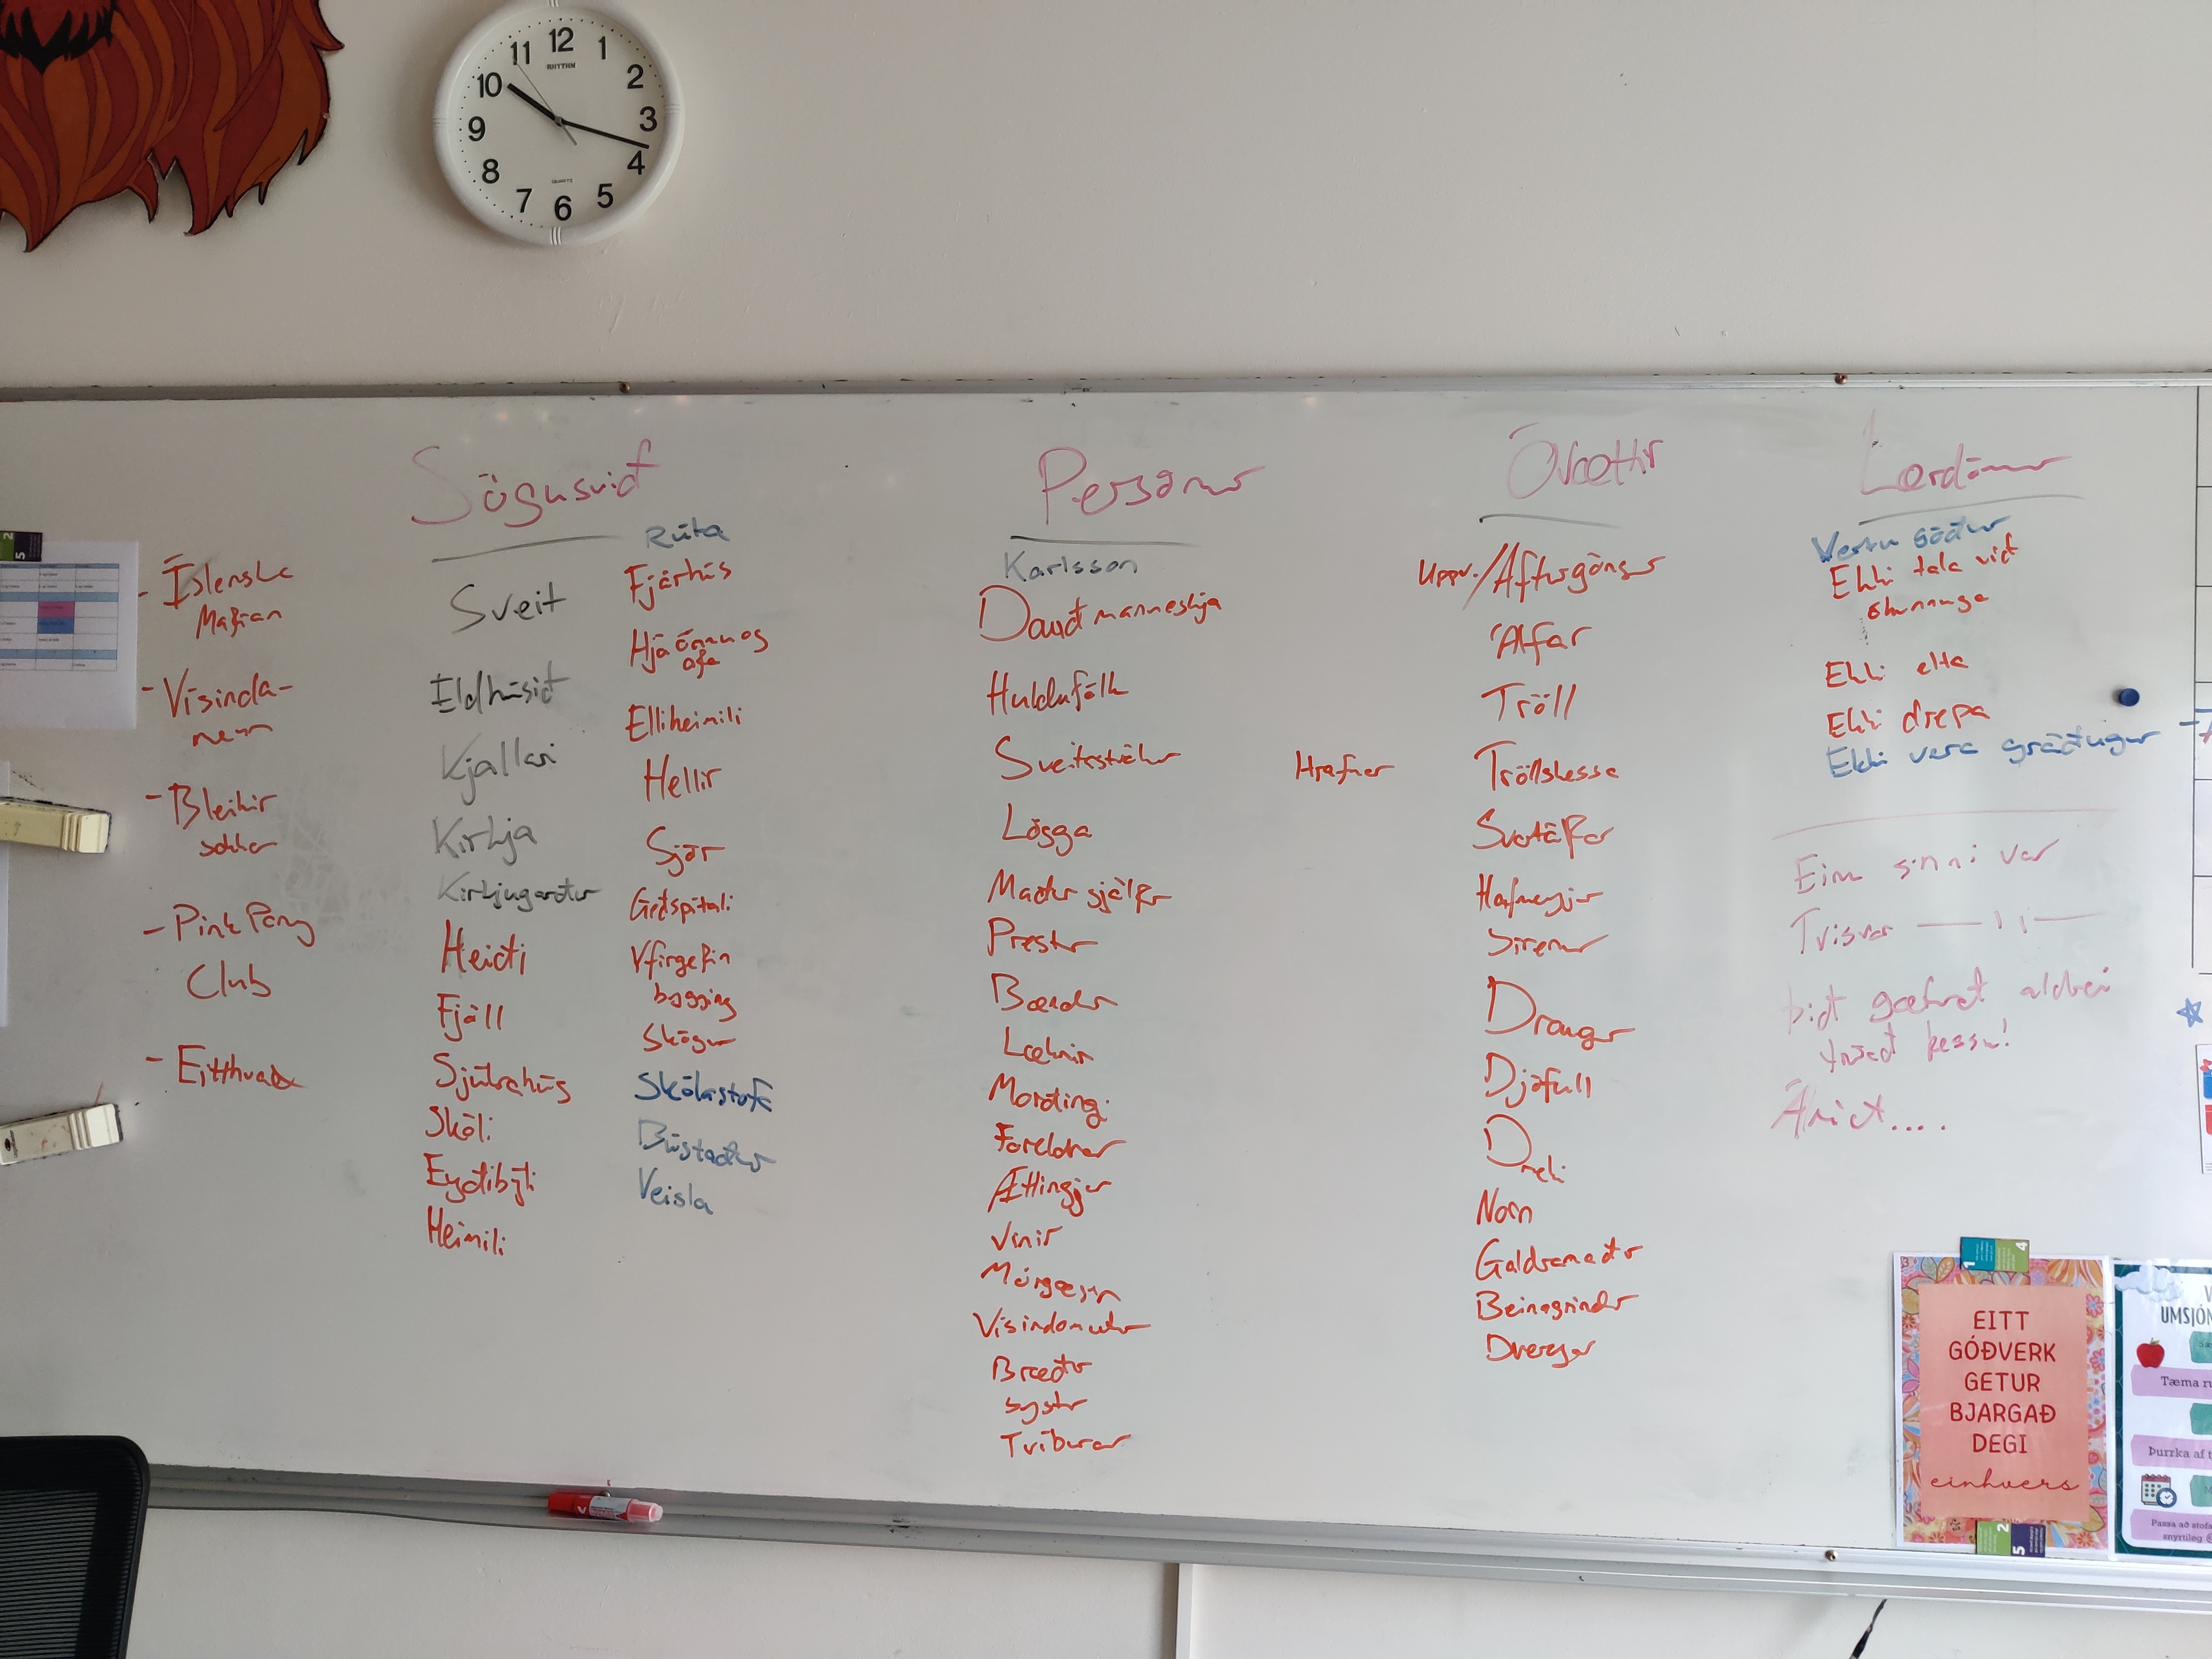 12
11
1
10
2
9
3
8
4
7
5
6
RHYTHM
QUARTZ
- Íslenska
Mafían
- Vísinda-
- Bleikir
sokkar
- Pink Pony
Club
- Eitthvað
Sögusvið
Sveit
Eldhúsið
Kjallari
Kirkja
Kirkjugarður
Heiði
Fjöll
Sjúkrahús
Skóli
Eyðibýli
Heimili
Rúta
Fjárhús
Hjá ömmu og
afa
Elliheimili
Hellir
Sjór
Geðspítali
Yfirgefin
bygging
Skógur
Skólastofa
Bústaður
Veisla
Persónur
Karlsson
Dauð manneskja
Huldufólk
Sveitastrákur
Lögga
Maður sjálfur
Prestur
Bændur
Læknir
Morðingi
Foreldrar
Ættingjar
Vinir
Mörgæsir
Bræður
Systur
Tvíburar
Hrafnar
Óvættir
Uppv./Afturgöngur
Álfar
Tröll
Tröllskessa
Svartálfar
Hafmeyjur
Sírenur
Draugar
Djöfull
Dreki
Norn
Galdramaður
Beinagrindur
Dvergar
Lærdómur
Vertu góður
Ekki tala við
ókunnuga
Ekki elta
Ekki drepa
Ekki vera gráðugur
Einu sinni var
Tvisvar —— 11 ——
Þið gætuð aldrei
trúað þessu!
Árið....
EITT
GÓÐVERK
GETUR
BJARGAÐ
DEGI
einhvers
UMSJÓN
Tæma ru
Þurrka af t
Passa að stofa
snyrtileg